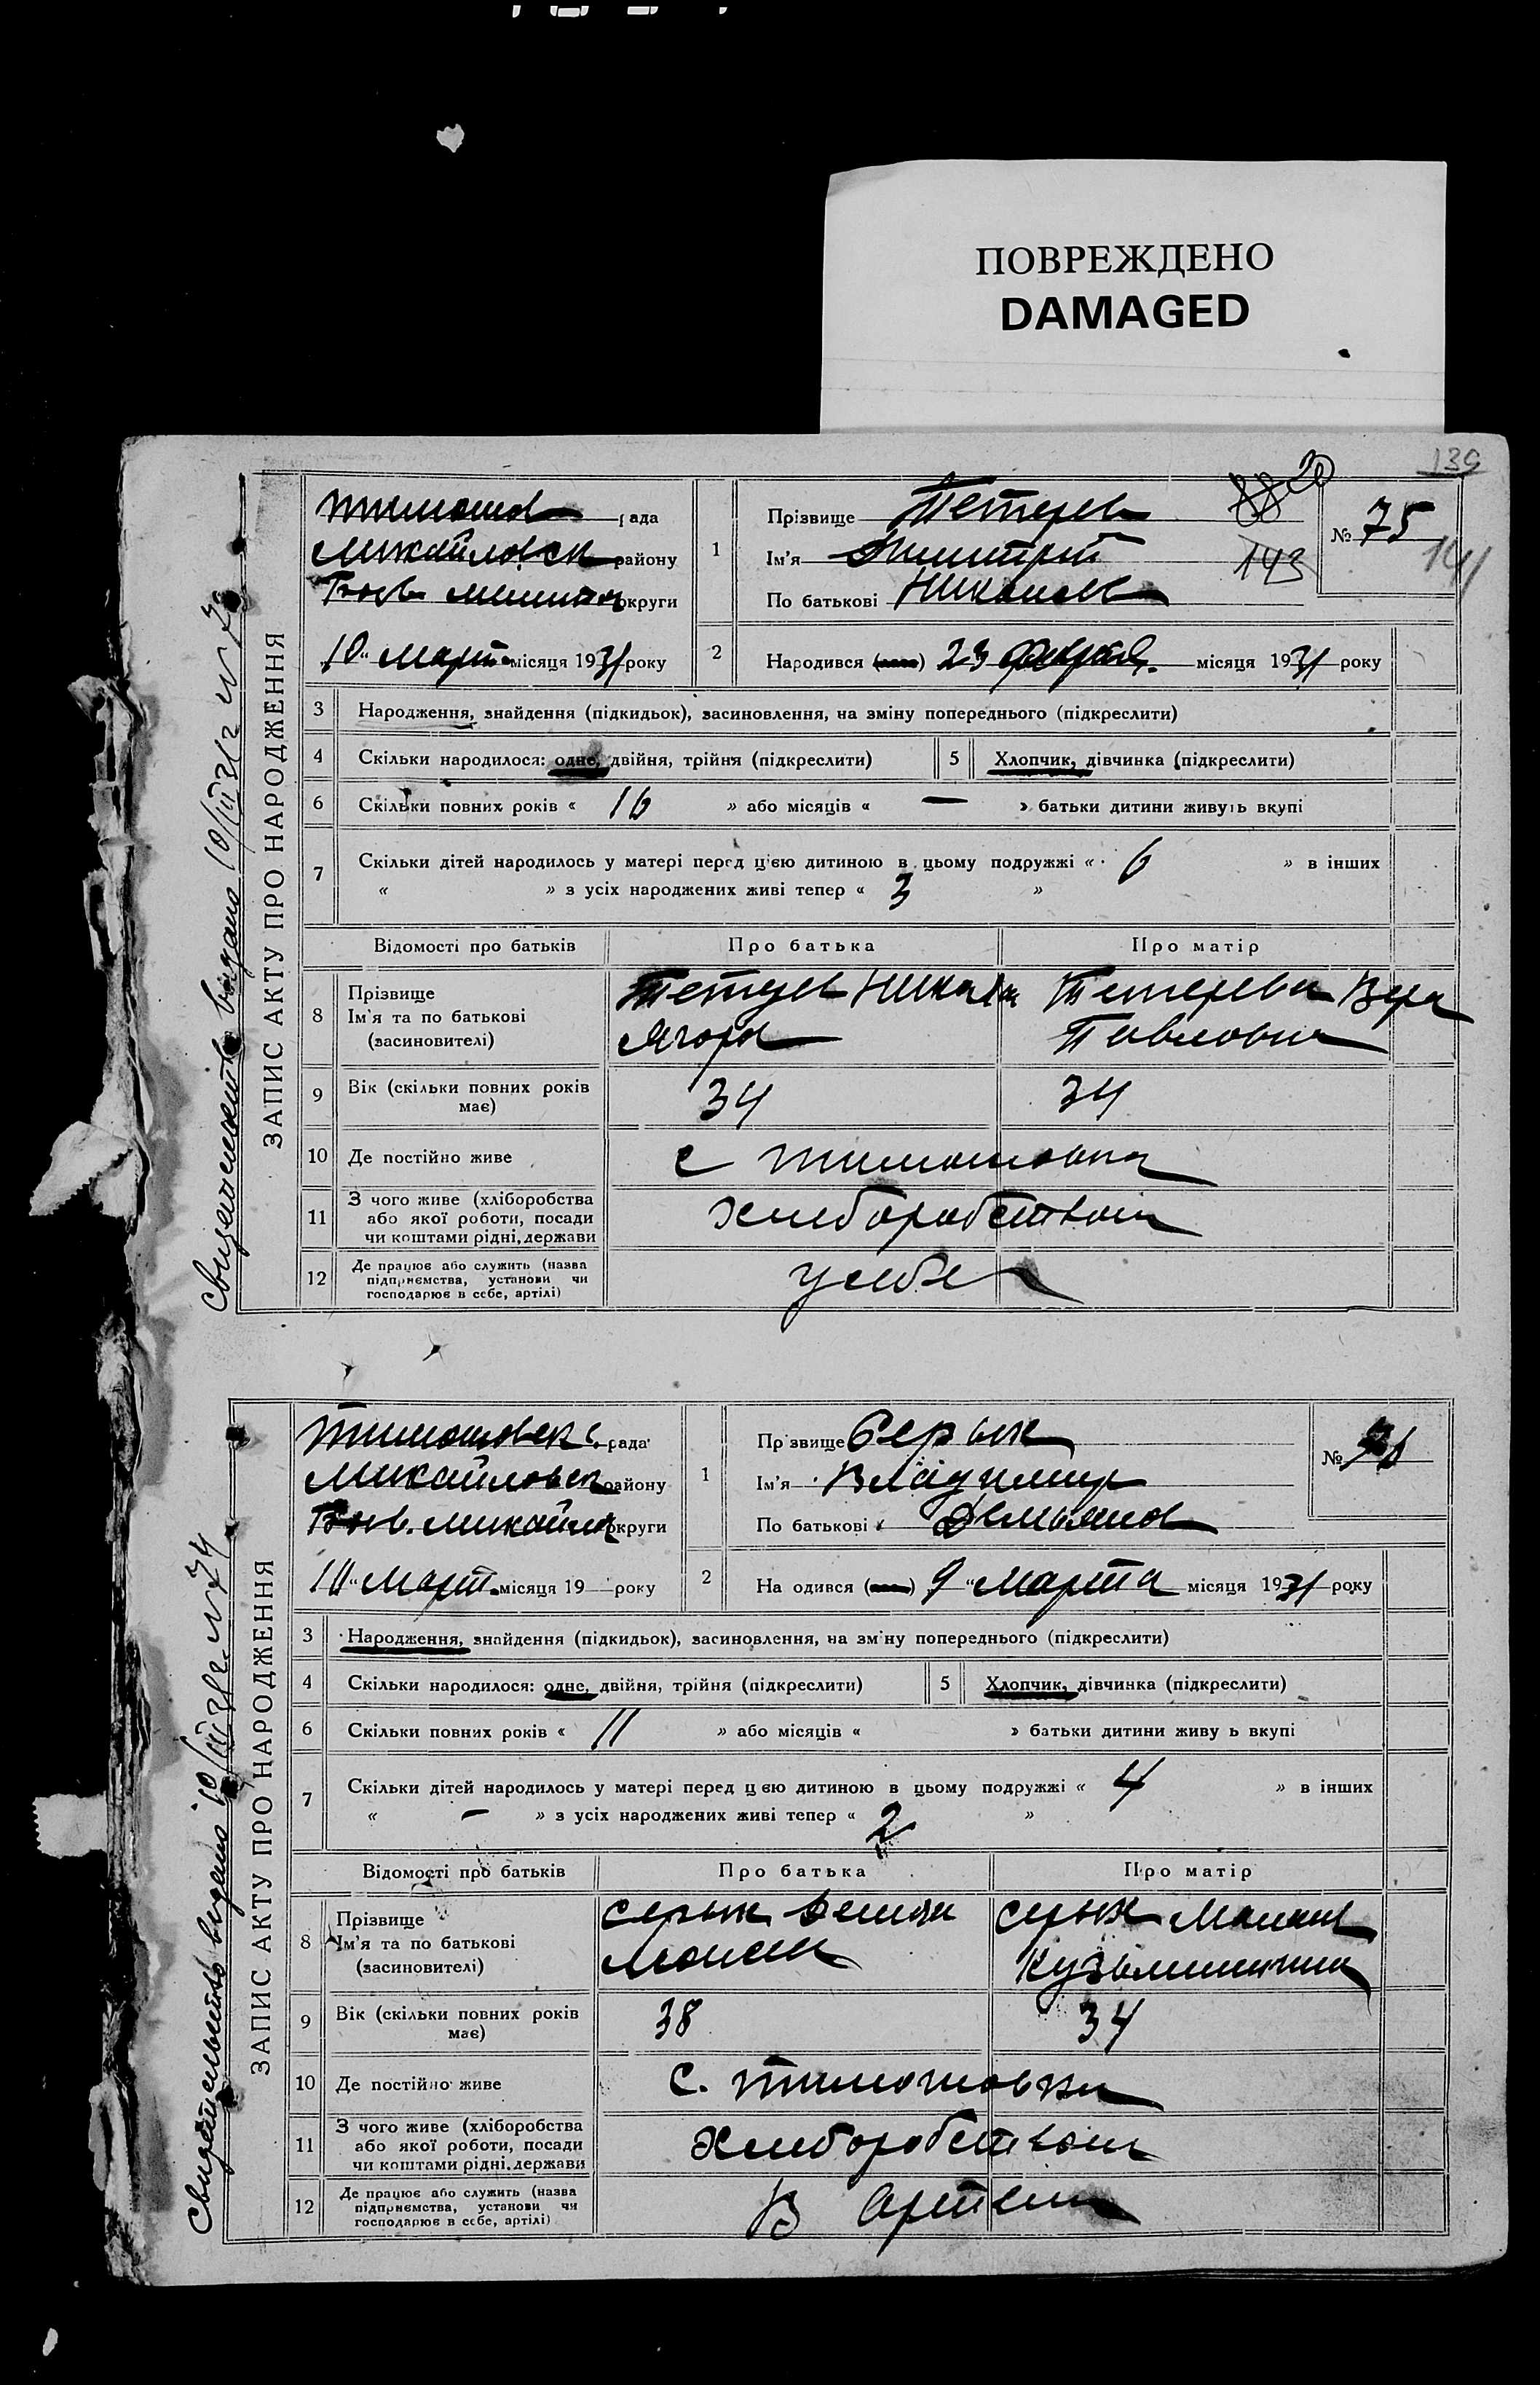 ПОВРЕЖДЕНО
DAMAGED
139
ЗАПИС АКТУ ПРО НАРОДЖЕННЯ
рада
Михайловск району
округи
"10" Март місяця 1931 року
1
Прізвище Тетерев
Ім'я Дмитрий
По батькові Николаев
143
№ 75
141
2
Народився 23 Февраля місяця 1931 року
3 Народження, знайдення (підкидьок), засиновлення, на зміну попереднього (підкреслити)
4 Скільки народилося: одне, двійня, трійня (підкреслити)
5 Хлопчик, дівчинка (підкреслити)
6 Скільки повних років « 16 » або місяців « — » батьки дитини живуть вкупі
7 Скільки дітей народилось у матері перед цією дитиною в цьому подружжі « 6 » в інших
« » з усіх народжених живі тепер « 3 »
Відомості про батьків Про батька Про матір
8 Прізвище
Ім'я та по батькові
(засиновителі)
Тетерев Никола
Ягора
Тетерева Вера
Павловна
9 Вік (скільки повних років має) 34 34
10 Де постійно живе с Тимошовка
11 З чого живе (хліборобства
або якої роботи, посади
чи коштами рідні, держави
Хлиборобством
12 Де працює або служить (назва
підприємства, установи чи
господарює в себе, артілі)
У себе
Свидетельство выдано 10/III 31 г
ЗАПИС АКТУ ПРО НАРОДЖЕННЯ
Тимошовск с. рада
Михайловск району
округи
"10" Март місяця 19 року
1
Пр звище Серык
Ім'я Владимир
По батькові Демьянов
№ 76
2
На одився 9 "Марта місяця 1931 року
3 Народження, знайдення (підкидьок), засиновлення, на зм ну попереднього (підкреслити)
4 Скільки народилося: одне, двійня, трійня (підкреслити)
5 Хлопчик, дівчинка (підкреслити)
6 Скільки повних років « 11 » або місяців « » батьки дитини живу ь вкупі
7 Скільки дітей народилось у матері перед цією дитиною в цьому подружжі « 4 » в інших
« — » з усіх народжених живі тепер « 2 »
Відомості про батьків Про батька Про матір
8 Прізвище
Ім'я та по батькові
(засиновителі)
Серык Демян
Моисеи
Серык
9 Вік (скільки повних років має) 38 34
10 Де постійно живе с. Тимошовка
11 З чого живе (хліборобства
або якої роботи, посади
чи коштами рідні, держави
Хлиборобством
12 Де працює або служить (назва
підприємства, установи чи
господарює в себе, артілі)
В Артели
Свидетельство выдано 10/III 31 г. № 74